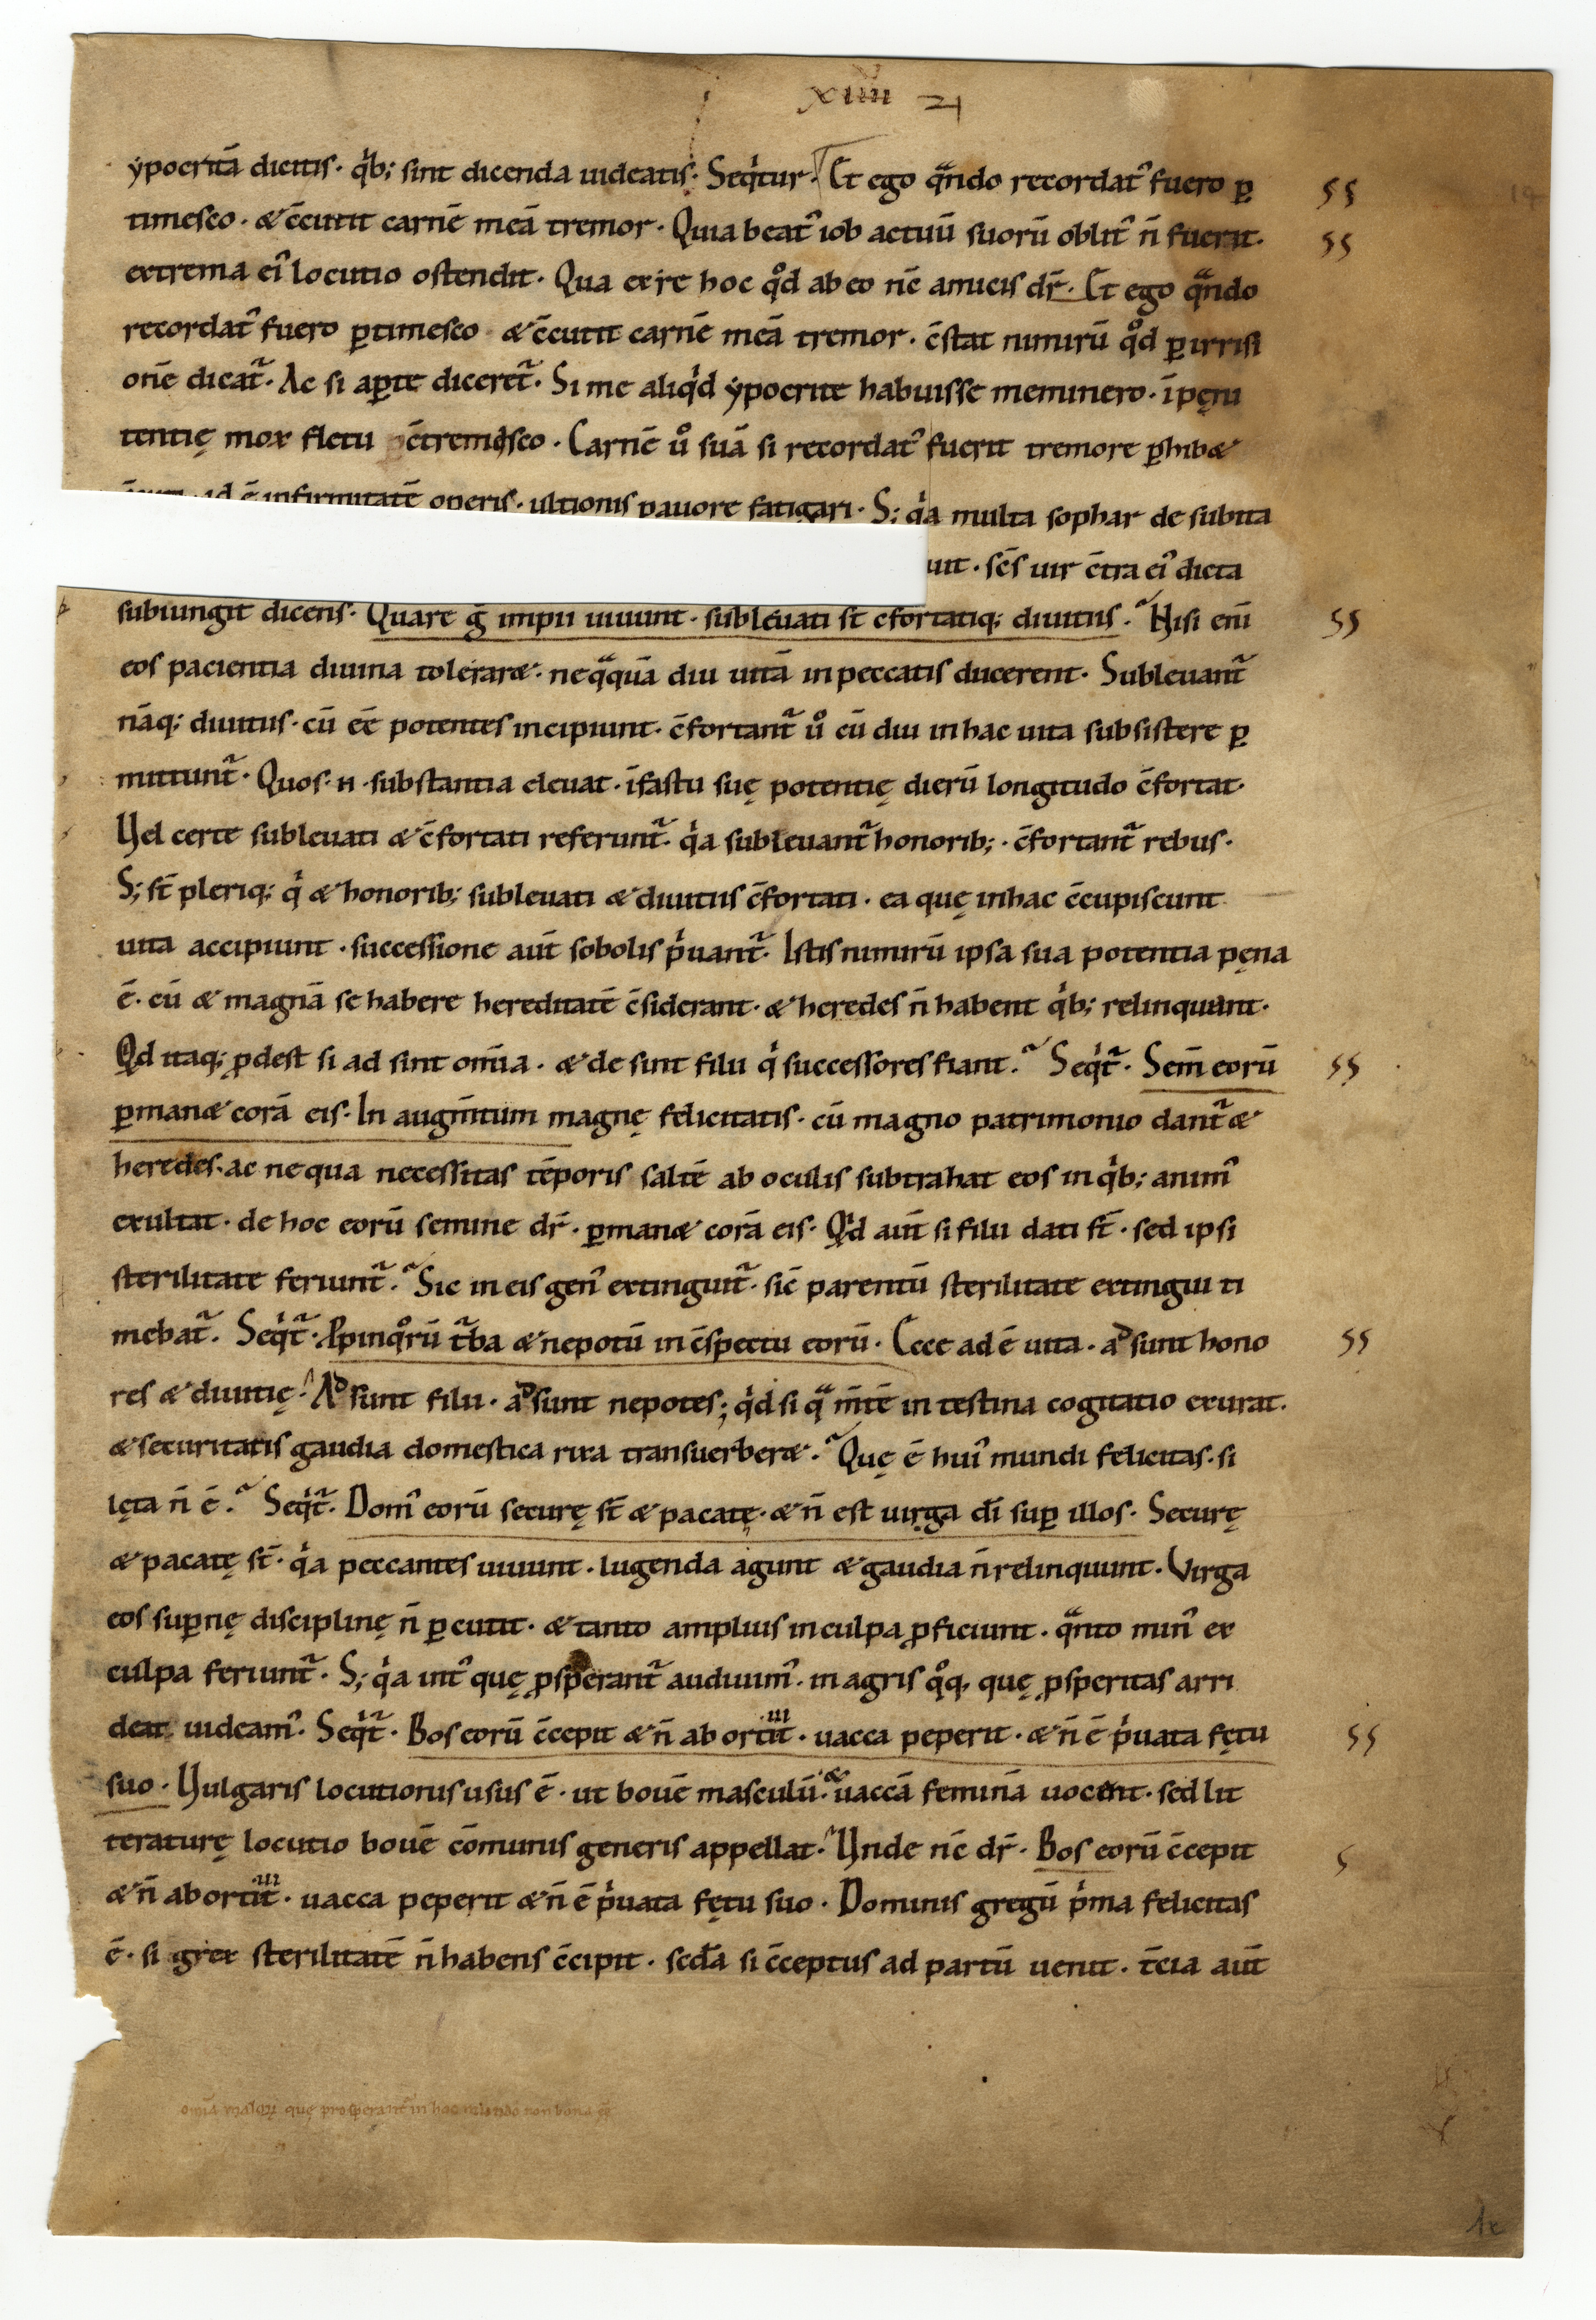 xiiii 21
ypocritā dicitis · qͥb; sint dicenda uideatis · Seqͥtur · Et ego qᷓndo recordatꝰ fuero ꝑ
timesco · & c̄cutit carnē meā tremor · Quia beatꝰ iob actuū suorū oblitꝰ n̄ fuerit ·
extrema eiꝰ locutio ostendit · Qua ex re hoc qͦd ab eo nc̄ amicis dr̄ · Et ego qᷓndo
recordatꝰ fuero ꝑtimesco & c̄cutit carnē meā tremor · c̄stat nimirū qͦd ꝑ irrisi
onē dicat᷑ · Ac si aꝑte diceret᷑ · Si me aliqͥd ypocrite habuisse meminero · ī pęni
tentię mox fletu c̄tremisco · Carnē uͦ suā si recordatꝰ fuerit tremore ꝑhib&
id ē infirmitatē operis · ultionis pauore fatigari · S; qͥa multa sophar de subita
uit · sc̄s uir c̄tra eiꝰ dicta
subiungit dicens · Quare g̊ impii uiuunt · subleuati st̄ cfortatiq; diuitiis · Nisi eni̅
eos pacientia diuina tolerar& · neqᷓquā diu uitā in peccatis ducerent · Subleuant᷑
nāq; diuitiis · cū ee̅ potentes incipiunt · c̄fortant᷑ uͦ cū diu in hac uita subsistere ꝑ
mittunt᷑ · Quos · n · substantia eleuat · ī fastu suę potentię dierū longitudo c̄fortat ·
Vel certe subleuati & c̄fortati referunt᷑ · qͥa subleuant᷑ honorib; · c̄fortant᷑ rebus ·
S; st̄ pleriq; qͥ & honorib; subleuati & diuitiis c̄fortati · ea quę in hac c̄cupiscunt
uita accipiunt · successione aut̄ sobolis pͥuant᷑ · Istis nimirū ipsa sua potentia pęna
ē · cū & magnā se habere hereditatē c̄siderant · & heredes n̄ habent qͥb; relinquant ·
Qd itaq; ꝓdest si ad sint om̄ia · & de sint filii qͥ successores fiant · Seqͥt᷑ · Sem̄ eorū
ꝑman& corā eis · In augm̄tum magnę felicitatis · cū magno patrimonio dant᷑ &
heredes · ac ne qua necessitas tēporis saltē ab oculis subtrahat eos in qͥb; animꝰ
exultat · de hoc eorū semine dr̄ · ꝑman& corā eis · Qd aut̄ si filii dati st̄ · sed ipsi
sterilitate feriunt᷑ · Sic in eis genꝰ extinguit᷑ · sic̄ parentū sterilitate extingui ti
mebat᷑ · Seqͥt᷑ · Ꝓpinqͦrū t᷑ba & nepotū in c̄spectu eorū · Ecce ad ē uita · aᵈ sunt hono
res & diuitię · Aᵈ sunt filii · aᵈ sunt nepotes ; qͥd si qᷓ m̄tē in testina cogitatio exurat ·
& securitatis gaudia domestica rixa transuerber& · Quę ē huiꝰ mundi felicitas · si
lęta n̄ ē · Seqͥt᷑ · Domꝰ eorū securę st̄ & pacatę · & n̄ est uirga dī suꝑ illos · Securę
& pacatę st̄ · qͥa peccantes uiuunt · lugenda agunt & gaudia n̄ relinquunt · Virga
eos suꝑnę disciplinę n̄ ꝑcutit · & tanto amplius in culpa ꝓficiunt · qᷓnto minꝰ ex
culpa feriunt᷑ · S; qͥa intꝰ quę ꝓsperant᷑ audiuimꝰ · in agris qͦq; quę ꝓsperitas arri
deat uideamꝰ · Seqͥt᷑ · Bos eorū c̄cepit & n̄ abortiit · uacca peperit · & n̄ ē pͥuata fętu
suo · Vulgaris locutionis usus ē · ut bouē masculū · & uaccā feminā uocent · sed lit
teraturę locutio bouē cōmunis generis appellat · Vnde nc̄ dr̄ · Bos eorū c̄cepit
& n̄ abortiit · uacca peperit & n̄ ē pͥuata fętu suo · Dominis gregū pͥma felicitas
ē · si grex sterilitatē n̄ habens c̄cipit · scd̄a si c̄ceptus ad partū uenit · t̄cia aut̄